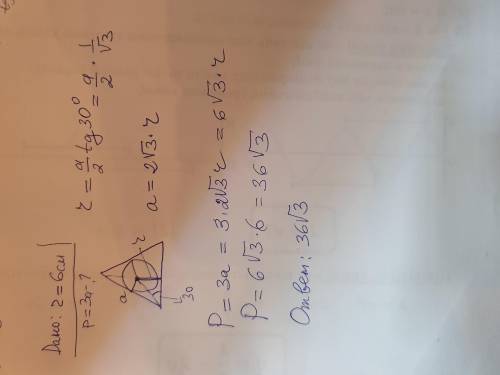 Дано: r = 6 см
P = 3a - ?
a
r
30
r = a/2 tg 30° = a/2 · 1/√3
a = 2√3 · r
P = 3a = 3·2√3 r = 6√3 · r
P = 6√3 · 6 = 36√3
Ответ: 36√3